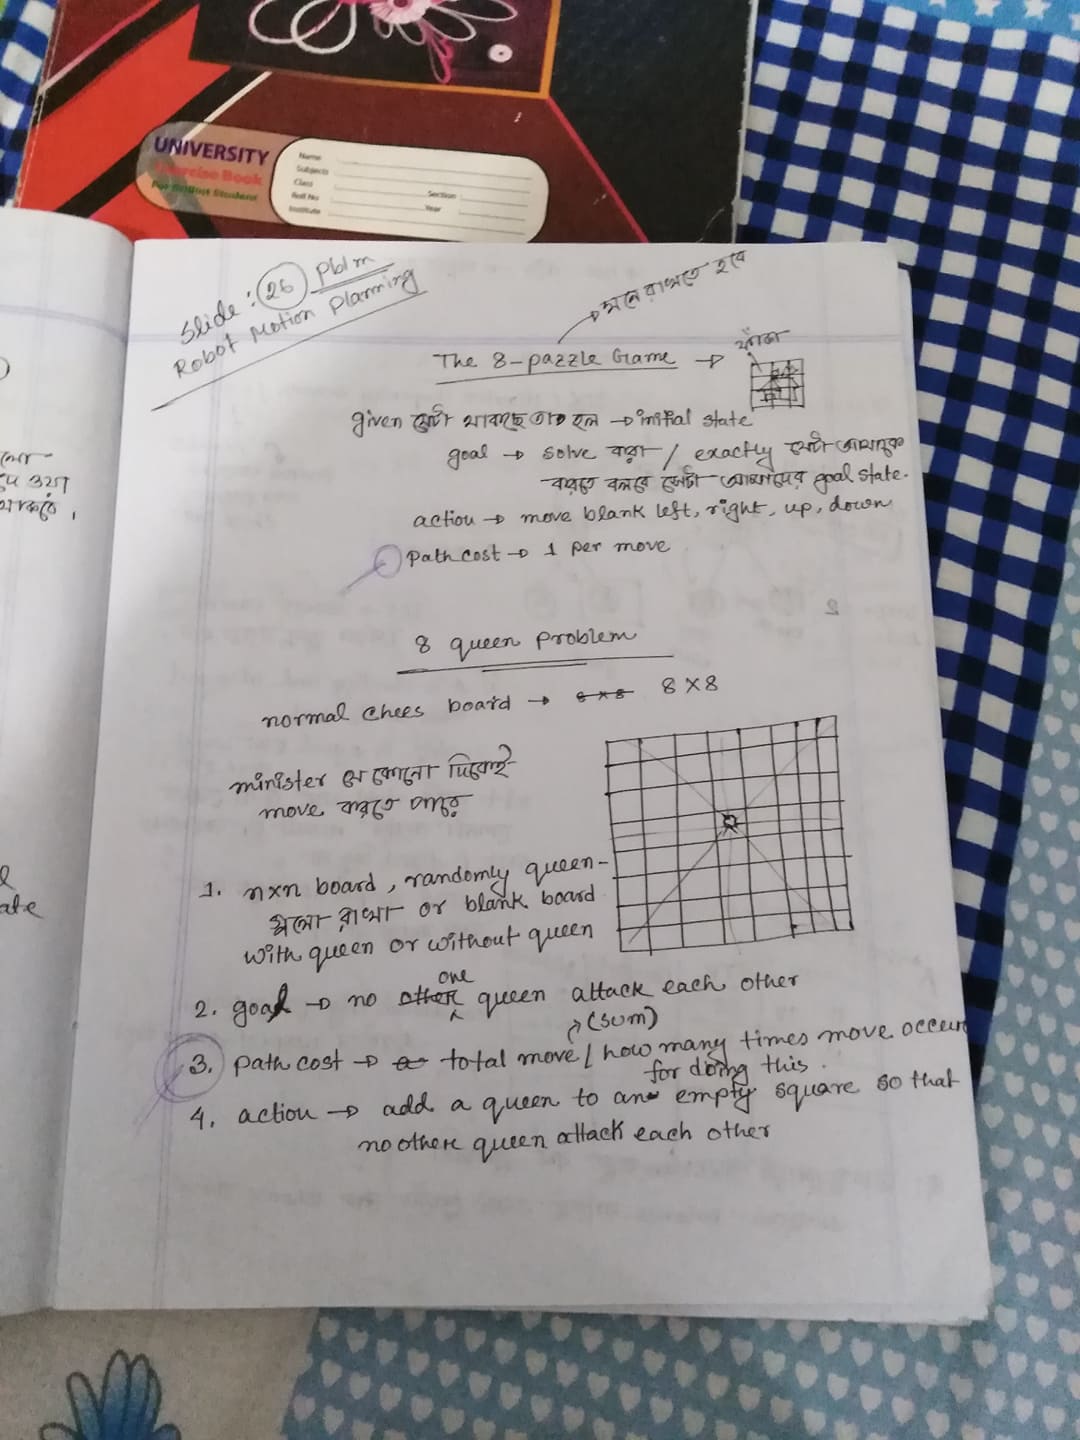 UNIVERSITY
Exercise Book
For Brilliant Student
Name
Subjects
Class
Section
Roll No
Year
Institute
Slide: 26 Pblm
Robot Motion Planning
মনে রাখতে হবে
The 8-pazzle Game →
ফাঁকা
given যেটা থাকছে তা হল → initial state
goal → solve করা / exactly যেটা আমাকে
করতে বলবে সেটা আমাদের goal state.
action → move blank left, right, up, down
Path cost → 1 per move
8 queen Problem
normal chees board → 8×8 8×8
minister যে কোনো দিকেই
move করতে পারে
1. n×n board, randomly queen-
গুলো রাখা or blank board
with queen or without queen
one
2. goal → no other queen attack each other
(sum)
3. path cost → total move / how many times move occur
for doing this.
4. action → add a queen to an empty square so that
no othere queen attack each other
থাকবে,
ate